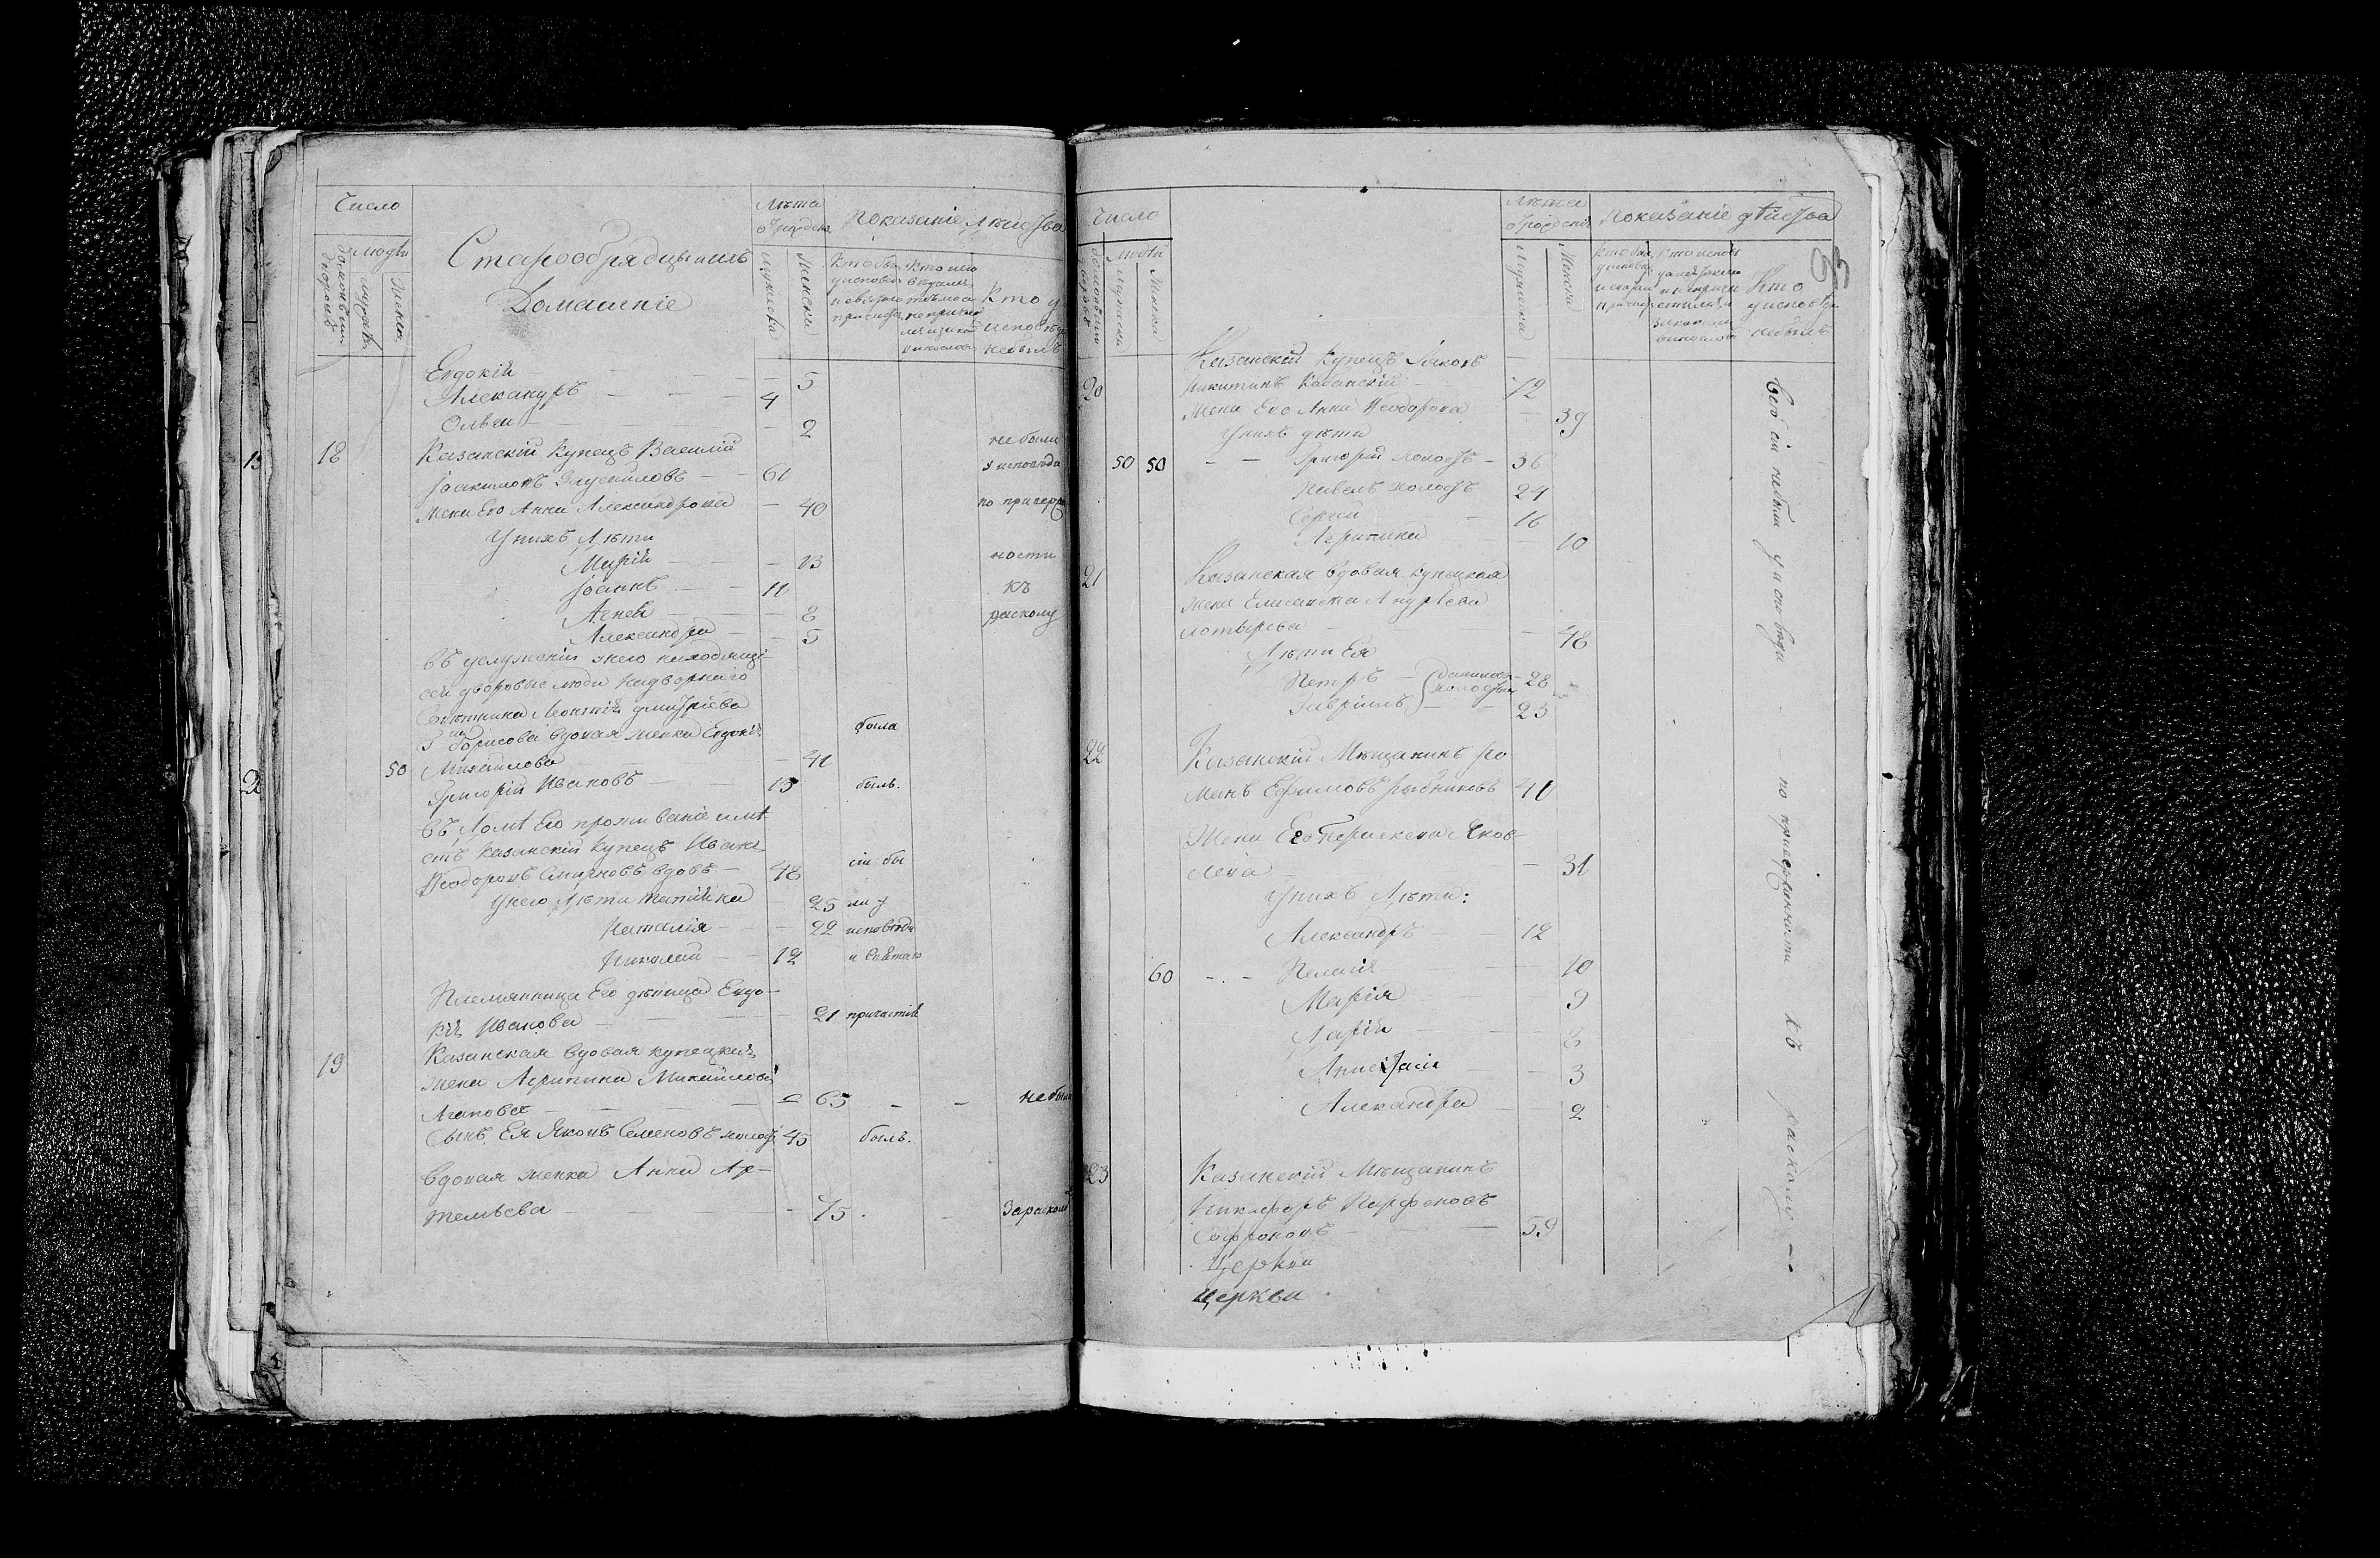 Число
людей
Старообрядцы и ихъ
Домашніе
Лѣта
Показаніе дѣйства
Евдокія 5
Александръ 4
Ольга 2
не были
18 Казанскій Купецъ Василій
у исповѣди
61
Жена Его Анна Александрова 40
по привер
У нихъ дѣти
женности
Марія 13
Іоаннъ 11
къ
Агнія 8
расколу
Александра 5
Въ услуженіи у него находящі
дворовые люди надворнаго
Совѣтника Леонтія Дмитріева
Борисова вдовая женка Евдокія
была
50 Михайлова 41
Григорій Ивановъ 13 былъ.
Въ домѣ Его проживаніе имѣ
етъ Казанскій Купецъ Иванъ
сіи бы
Ѳеодоровъ Смирновъ вдовъ 48
У него дѣти Татіана 25 ли у
Наталія 22 исповѣди
Николай 12 и святаго
Племянница Его дѣвица Евдо-
кія Иванова 21 причастія
19 Казанская вдовая купецкая
жена Агрипина Михайлова
Агапова 65 не была
Сынъ Ея Яковъ Семеновъ холостъ 45 былъ.
Вдовая женка Анна Ар-
темьева 75 За расколомъ
Число
Люди
Лѣта
Показаніе дѣйства
Кто
у исповѣди
не былъ
Казанскій Купецъ Іаковъ
20 Никитинъ 72
Жена Его Анна Ѳеодорова 39
У нихъ дѣти
50 50 Григорій холостъ 36
Павелъ холостъ 24
Сергій 16
Агрипина 10
21 Казанская вдовая купецкая
жена Елисавета Андреева
48
Дѣти Ея
Петръ 28
Гавріилъ 23
22 Казанскій Мѣщанинъ Ро
манъ Ефимовъ Рыбниковъ 41
Жена Его Параскева Яков
лева 31
У нихъ дѣти:
Александръ 12
60 Пелагія 10
Марія 9
Дарія 8
Анастасія 3
Александра 2
23 Казанскій Мѣщанинъ
Никифоръ Парфеновъ
Софроновъ 59
Церкви
церкви
Всѣ сіи не были у исповѣди по приверженности къ расколу